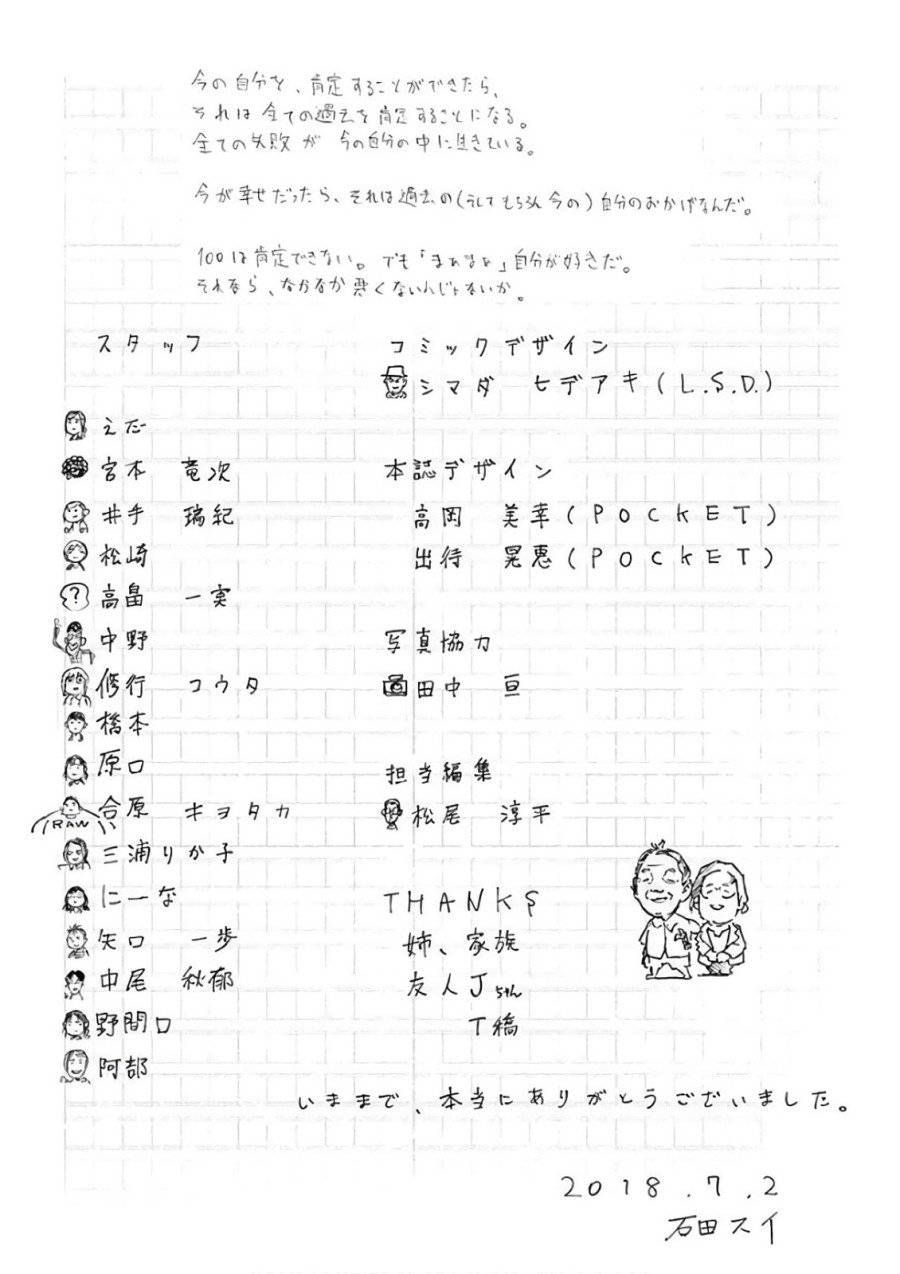 今の自分を、肯定することができたら、
それは全ての過去を肯定することになる。
全ての失敗が今の自分の中に生きている。
今が幸せだったら、それは過去の(そしてもちろん今の)自分のおかげなんだ。
100は肯定できない。でも「まぁまぁ」自分が好きだ。
それなら、なかなか悪くないんじゃないか。
スタッフ
えだ
宮本 竜次
井手 瑞紀
松崎
?
高畠 一実
中野
修行 コウタ
橋本
原口
RAW
合原 キヨタカ
三浦りか子
にーな
矢口 一歩
中尾 秋郁
野間口
阿部
コミックデザイン
シマダ ヒデアキ(L.S.D.)
本誌デザイン
高岡 美幸(POCKET)
出待 晃恵(POCKET)
写真協力
田中 亘
担当編集
松尾 淳平
THANKS
姉、家族
友人Jちゃん
T橋
いままで、本当にありがとうございました。
2018.7.2
石田スイ